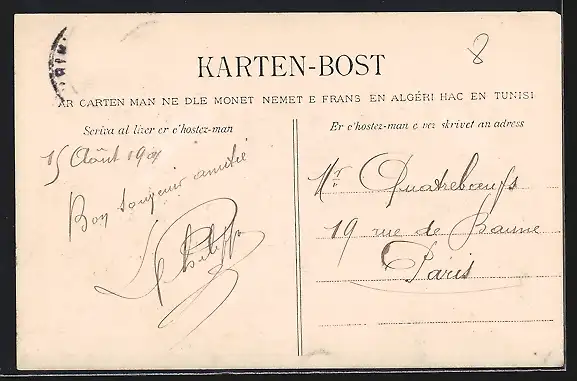 8
KARTEN-BOST
AR CARTEN MAN NE DLE MONET NEMET E FRANS EN ALGÉRI HAC EN TUNISI
Scriva al lizer er c'hostez-man
Er c'hostez-man e vez skrivet an adress
15 Août 190
Bon souvenir amitié
Philippe
Mr Quatreboeufs
19 rue de
Paris